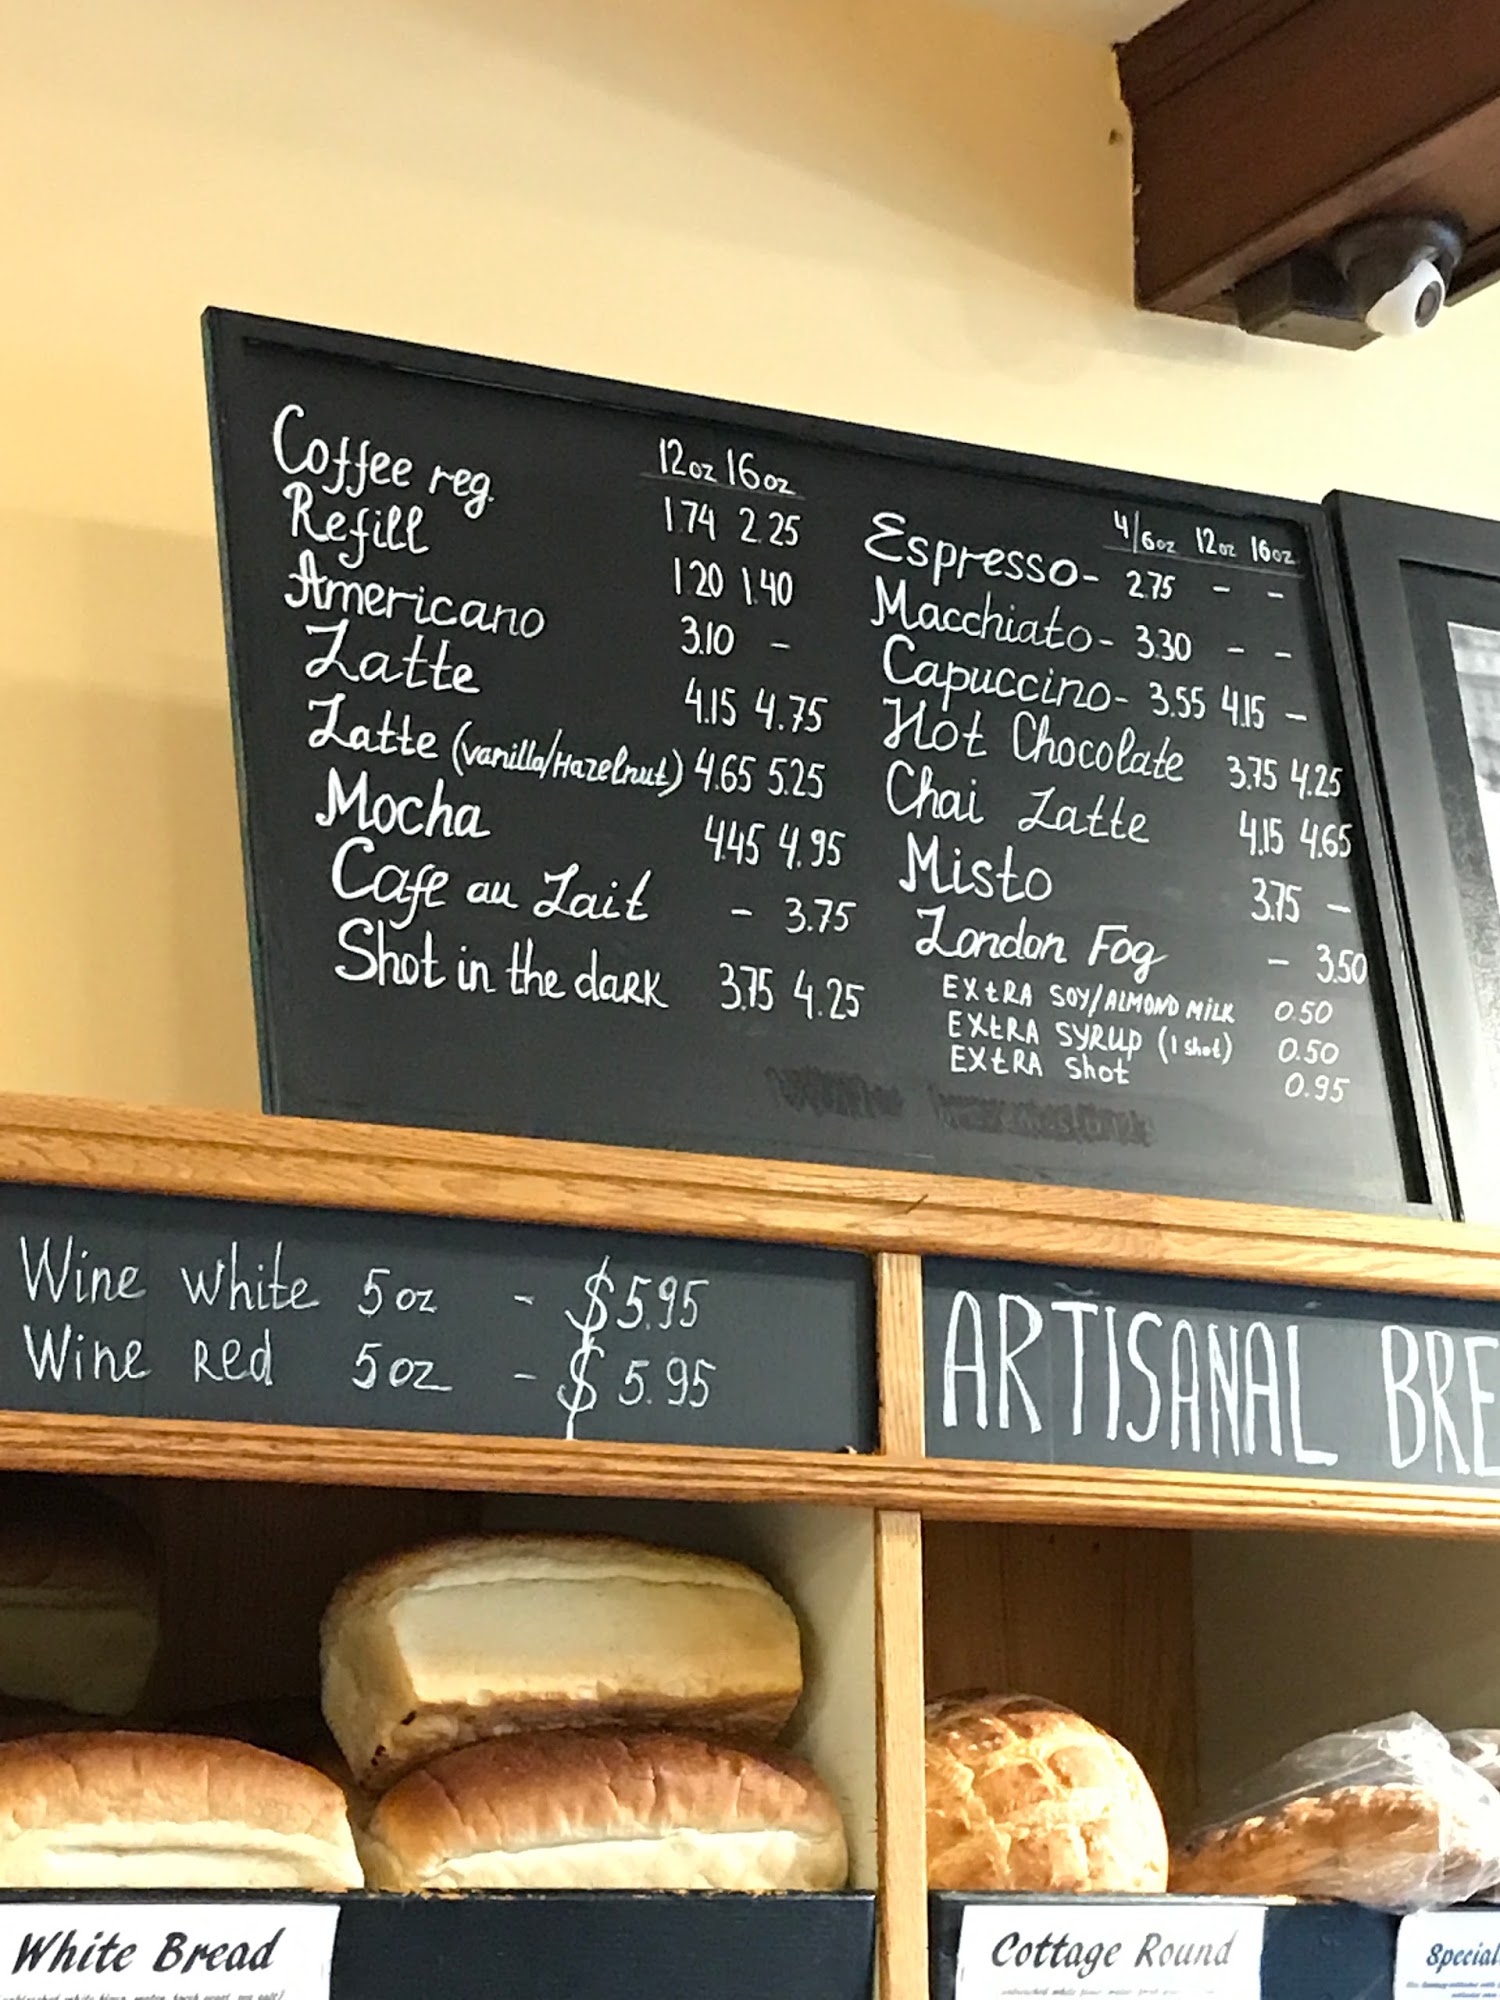 12oz 16oz
Coffee reg. 1.74 2.25
Refill 1.20 1.40
Americano 3.10 -
Latte 4.15 4.75
Latte (vanilla/Hazelnut) 4.65 5.25
Mocha 4.45 4.95
Cafe au Lait - 3.75
Shot in the dark 3.75 4.25
4/6oz 12oz 16oz
Espresso- 2.75 - -
Macchiato- 3.30 - -
Capuccino- 3.55 4.15 -
Hot Chocolate 3.75 4.25
Chai Latte 4.15 4.65
Misto 3.75 -
London Fog - 3.50
EXtRA SOY/ALMOND MiLK 0.50
EXtRA SYRUP (1 shot) 0.50
EXtRA Shot 0.95
Wine white 5oz - $5.95
Wine Red 5oz - $5.95
ARTISANAL BRE
White Bread
Cottage Round
Special